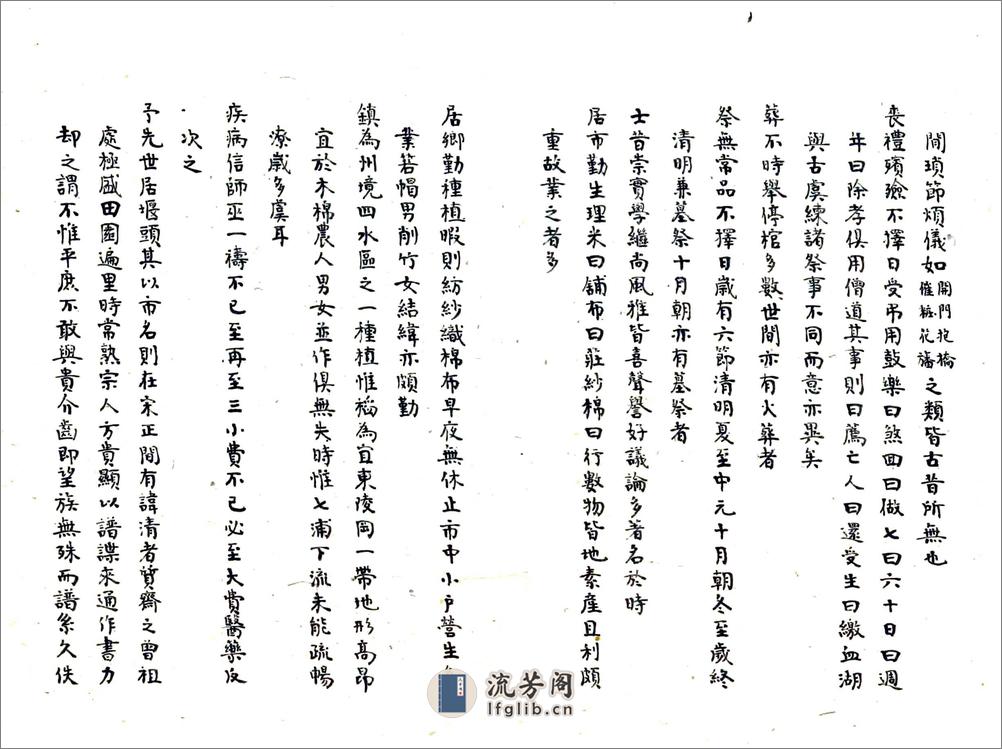 間瑣節煩儀如開門挹橋催粧花旛之類皆古昔所無也
喪禮殯殮不擇日受弔用鼓樂曰煞回曰做七曰六十日曰週
年曰除孝俱用僧道其事則曰薦亡人曰還受生曰繳血湖
與古虞練諸祭事不同而意亦異矣
葬不時舉停棺多數世間亦有火葬者
祭無常品不擇日歲有六節清明夏至中元十月朝冬至歲終
清明兼墓祭十月朝亦有墓祭者
士昔崇實學繼尚風雅皆喜聲譽好議論多著名於時
居市勤生理米曰鋪布曰莊紗棉曰行數物皆地素產且利頗
重故業之者多
居鄉勤種植暇則紡紗織棉布早夜無休止市中小戶營生
業箬帽男削竹女結緯亦頗勤
鎮為州境四水區之一種植惟稻為宜東陵岡一帶地形高昂
宜於木棉農人男女並作俱無失時惟七浦下流未能疏暢
潦歲多虞耳
疾病信師巫一禱不已至再至三小費不已必至大費醫藥反
次之
予先世居堰頭其以市名則在宋正間有諱清者質齋之曾祖
處極盛田園遍里時常熟宗人方貴顯以譜諜來通作書力
却之謂不惟平庶不敢與貴介齒即望族無殊而譜系久佚
流芳阁
lfglib.cn